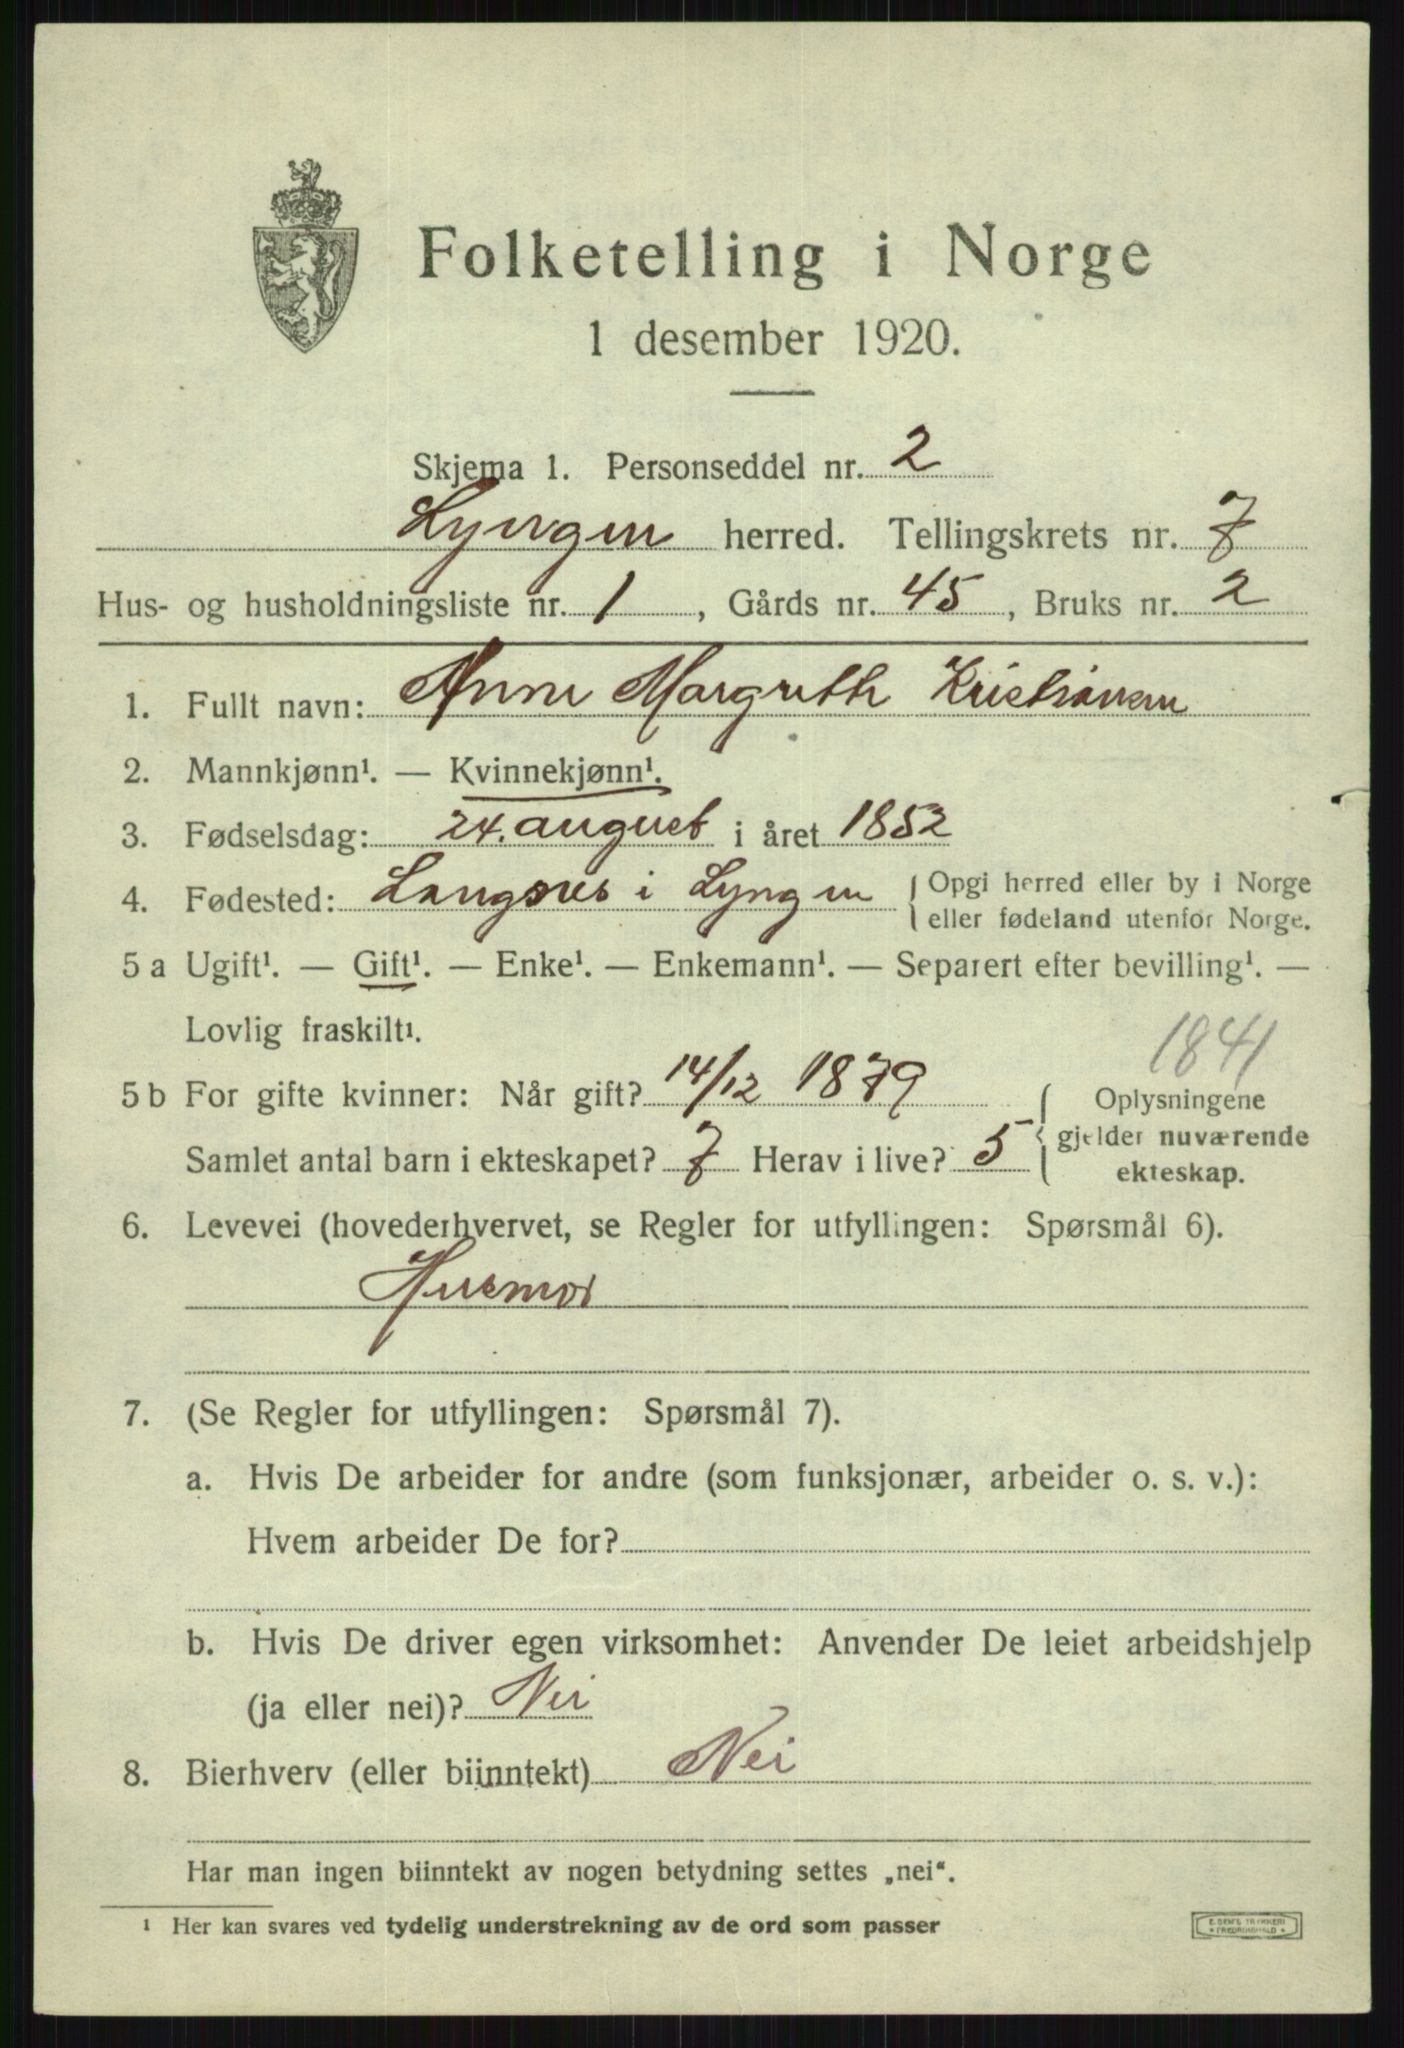 Folketelling i Norge
1 desember 1920.
Skjema 1. Personseddel nr. 2
Lyngen herred. Tellingskrets nr. 7
Hus- og husholdningsliste nr. 1, Gårds nr. 45, Bruks nr. 2
1. Fullt navn: Anne Margreth Kristiansen
2. Mannkjønn¹. — Kvinnekjønn¹.
3. Fødselsdag: 24. august i året 1852
4. Fødested: i Lyngen { Opgi herred eller by i Norge
eller fødeland utenfor Norge.
5 a Ugift¹. — Gift¹. — Enke¹. — Enkemann¹. — Separert efter bevilling¹. —
Lovlig fraskilt¹.
1841
5 b For gifte kvinner: Når gift? 14/12 1879 { Oplysningene
gjelder nuværende
Samlet antal barn i ekteskapet? 7 Herav i live? 5
ekteskap.
6. Levevei (hovederhvervet, se Regler for utfyllingen: Spørsmål 6).
Husmor
7. (Se Regler for utfyllingen: Spørsmål 7).
a. Hvis De arbeider for andre (som funksjonær, arbeider o. s. v.):
Hvem arbeider De for?
b. Hvis De driver egen virksomhet: Anvender De leiet arbeidshjelp
(ja eller nei)? Nei
8. Bierhverv (eller biinntekt) Nei
Har man ingen biinntekt av nogen betydning settes „nei“.
¹ Her kan svares ved tydelig understrekning av de ord som passer
E. SEM'S TRYKKERI
FREDRIKSHALD